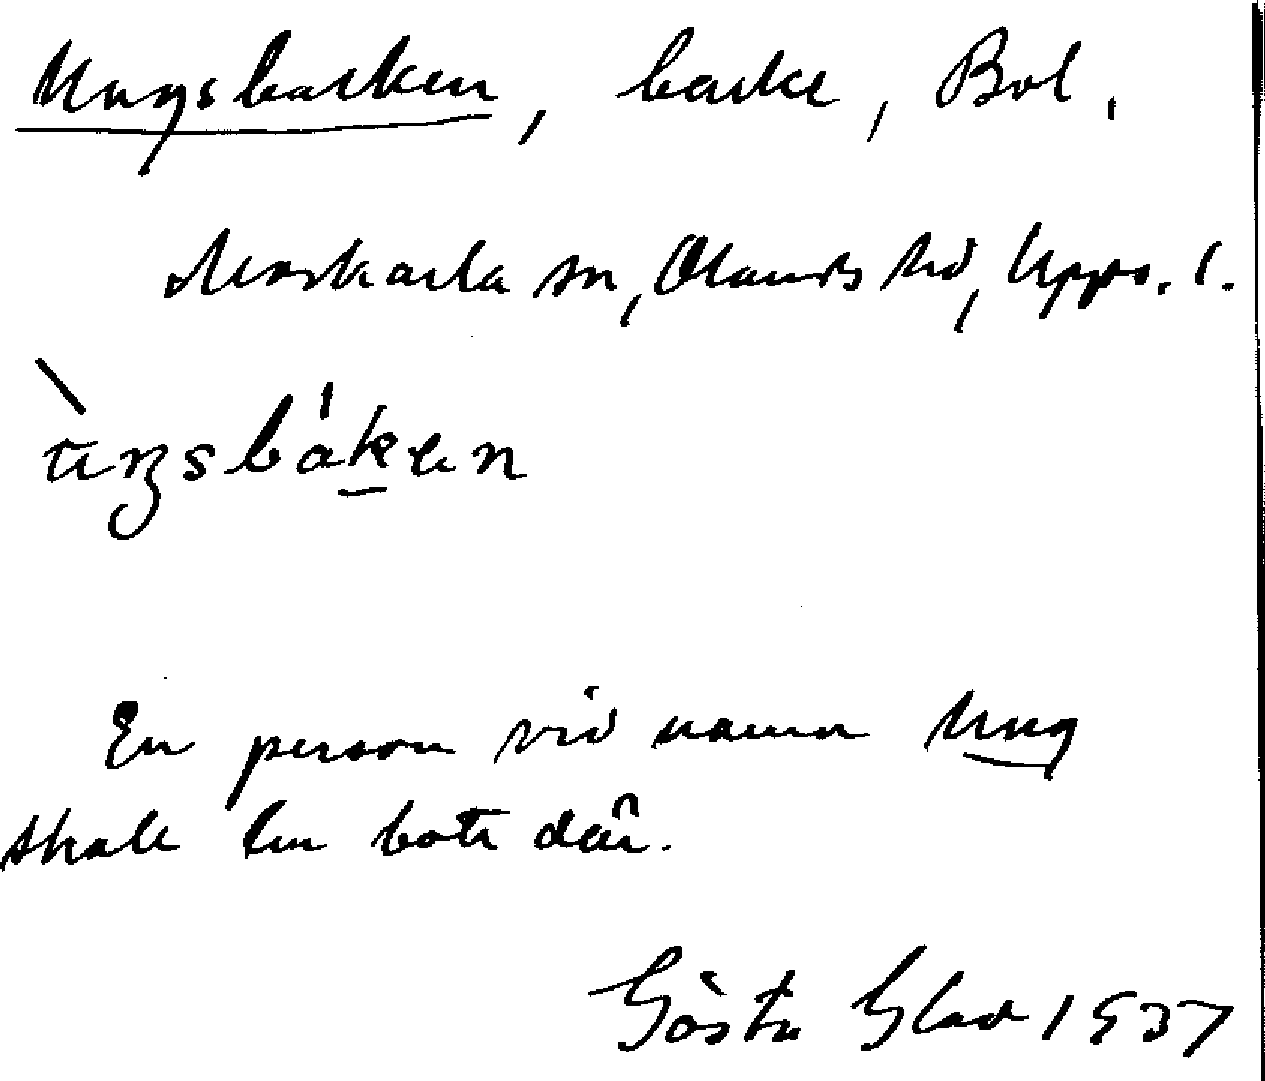 Ungsbacken, backe, Bol.
Morkarla sn, Olands hd, Upps. l.
En person vid namn Ung
skall ha bott där.
Gösta Glad 1937